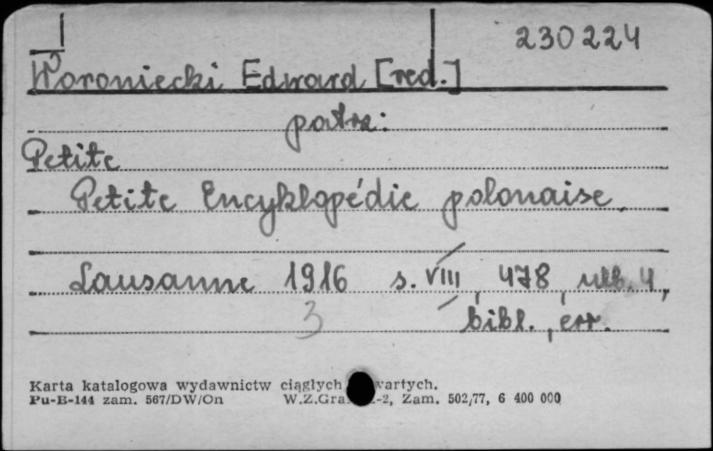 230224
Woroniecki Edward [red.]
patrz:
Petite
Petite Encyklopédie polonaise,
Lausanne 1916 s. VIII, 478, nlb. 4,
3 bibl., err.
Karta katalogowa wydawnictw ciągłych wartych.
Pu-B-144 zam. 567/DW/On W.Z.Gra -2, Zam. 502/77, 6 400 000